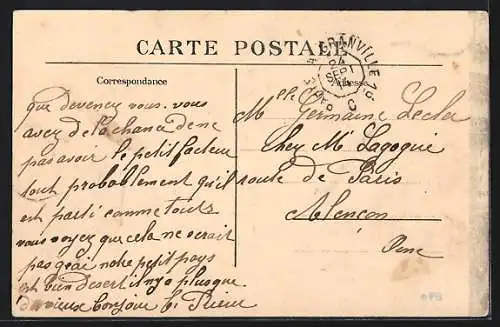 CARTE POSTALE
Correspondance
Adresse
GRANVILLE
que devenez vous. vous
avez de la chance de ne
pas avoir le petit facteur
tout probablement qu'il
est parti comme touts
vous voyez que cela ne serait
pas geai notre petit pays
est bien desert il n'y a plus que
vieux bonjour
Mlle Germaine Lecler
Chez Mr Lagogué
route de Paris
Alençon
Orne